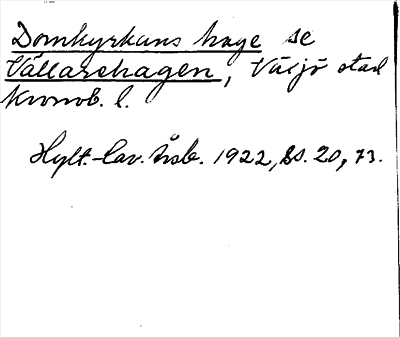 Domkyrkans hage se
Vällarehagen, Växjö stad
Kronob. l.
Hylt.-Cav. årsb. 1922, s. 20, 73.